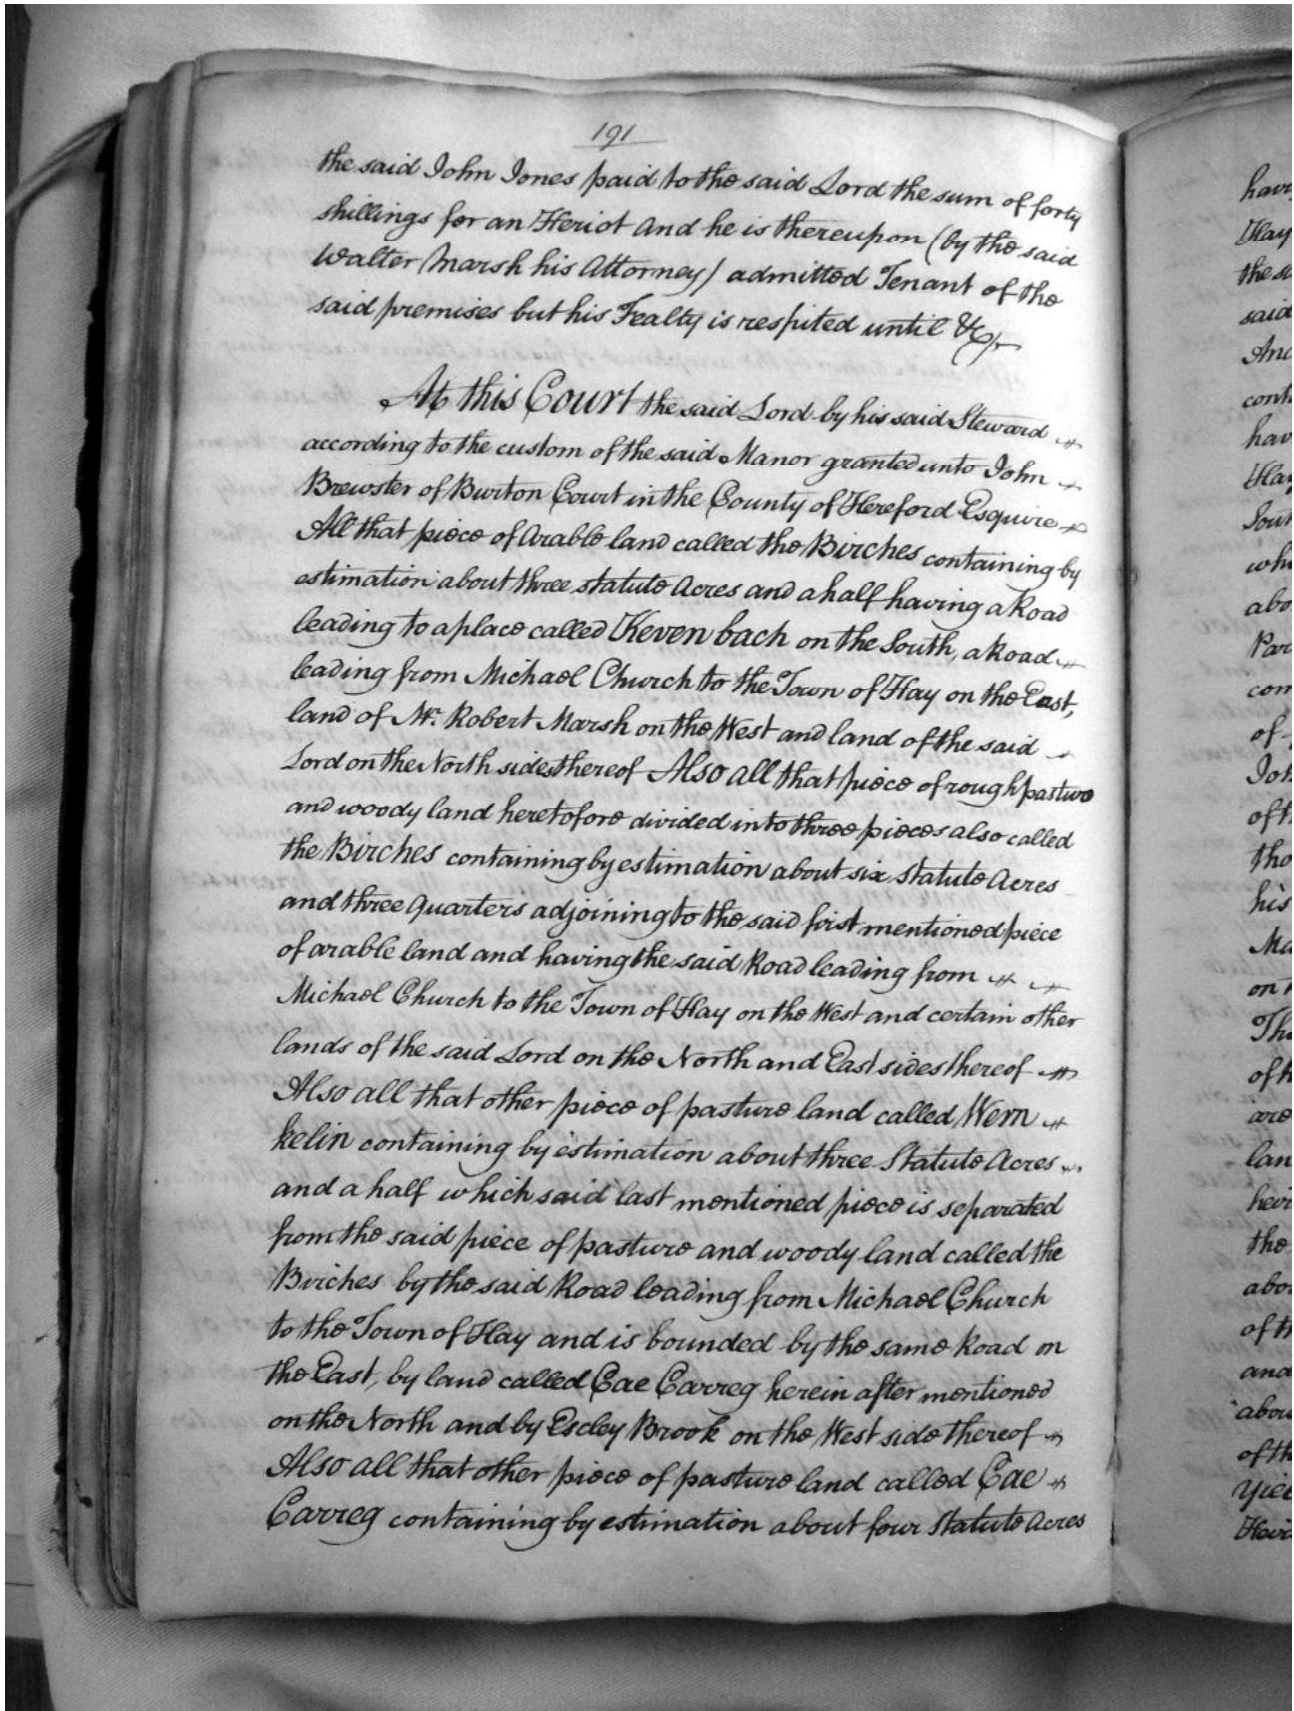 191
the said John Jones paid to the said Lord the sum of forty
shillings for an Heriot and he is thereupon (by the said
Walter Marsh his Attorney) admitted Tenant of the
said premises but his Fealty is respited until &c
At this Court the said Lord by his said Steward
according to the custom of the said Manor granted unto John
Brewster of Burton Court in the County of Hereford Esquire
All that piece of Arable land called the Birches containing by
estimation about three statute Acres and a half having a Road
leading to a place called Keven bach on the South, a Road
leading from Michael Church to the Town of Hay on the East,
land of Mr. Robert Marsh on the West and land of the said
Lord on the North sides thereof Also all that piece of rough pasture
and woody land heretofore divided into three pieces also called
the Birches containing by estimation about six statute Acres
and three Quarters adjoining to the said first mentioned piece
of arable land and having the said Road leading from
Michael Church to the Town of Hay on the West and certain other
lands of the said Lord on the North and East sides thereof
Also all that other piece of pasture land called Wern
kelin containing by estimation about three Statute Acres
and a half which said last mentioned piece is separated
from the said piece of pasture and woody land called the
Birches by the said Road leading from Michael Church
to the Town of Hay and is bounded by the same Road on
the East, by land called Cae Carreg herein after mentioned
on the North and by Escley Brook on the West side thereof
Also all that other piece of pasture land called Cae
Carreg containing by estimation about four Statute Acres